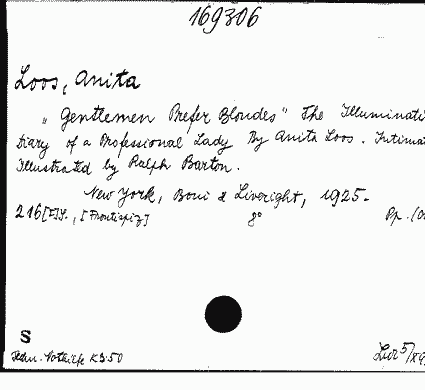 169306
Loos, Anita
„Gentlemen Prefer Blondes" The Illuminati
Diary of a Professional Lady By Anita Loos. Intimat
Illustrated by Ralph Barton.
New York, Boni & Liveright, 1925.
216[F]S., [Frontispiz] 8° Pp.
S